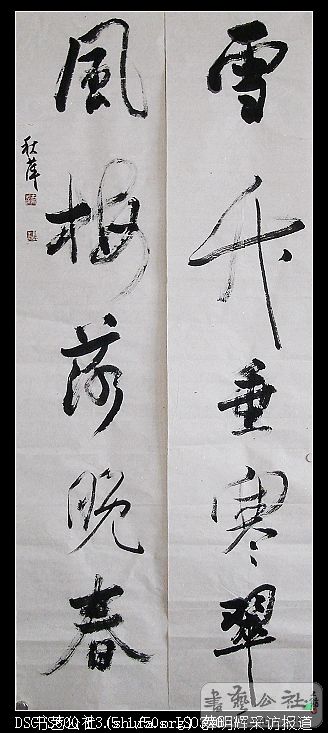 雪竹垂寒翠
風梅落晚春
秋萍
書藝公社
书艺公社(shufa.org) 薛明辉采访报道